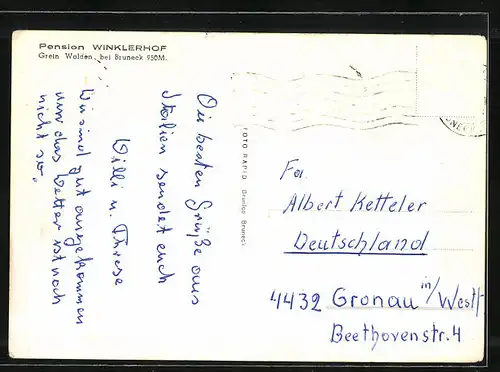 Pension WINKLERHOF
Grein Walden, bei Bruneck 950M.
Die besten Grüße aus
Italien sendet euch
Willi u. Threse
Wir sind gut angekommen
nur das Wetter ist noch
nicht so.
FOTO RAPID Brunico Bruneck
Fa
Albert Ketteler
Deutschland
4432 Gronau in/Westf
Beethovenstr. 4